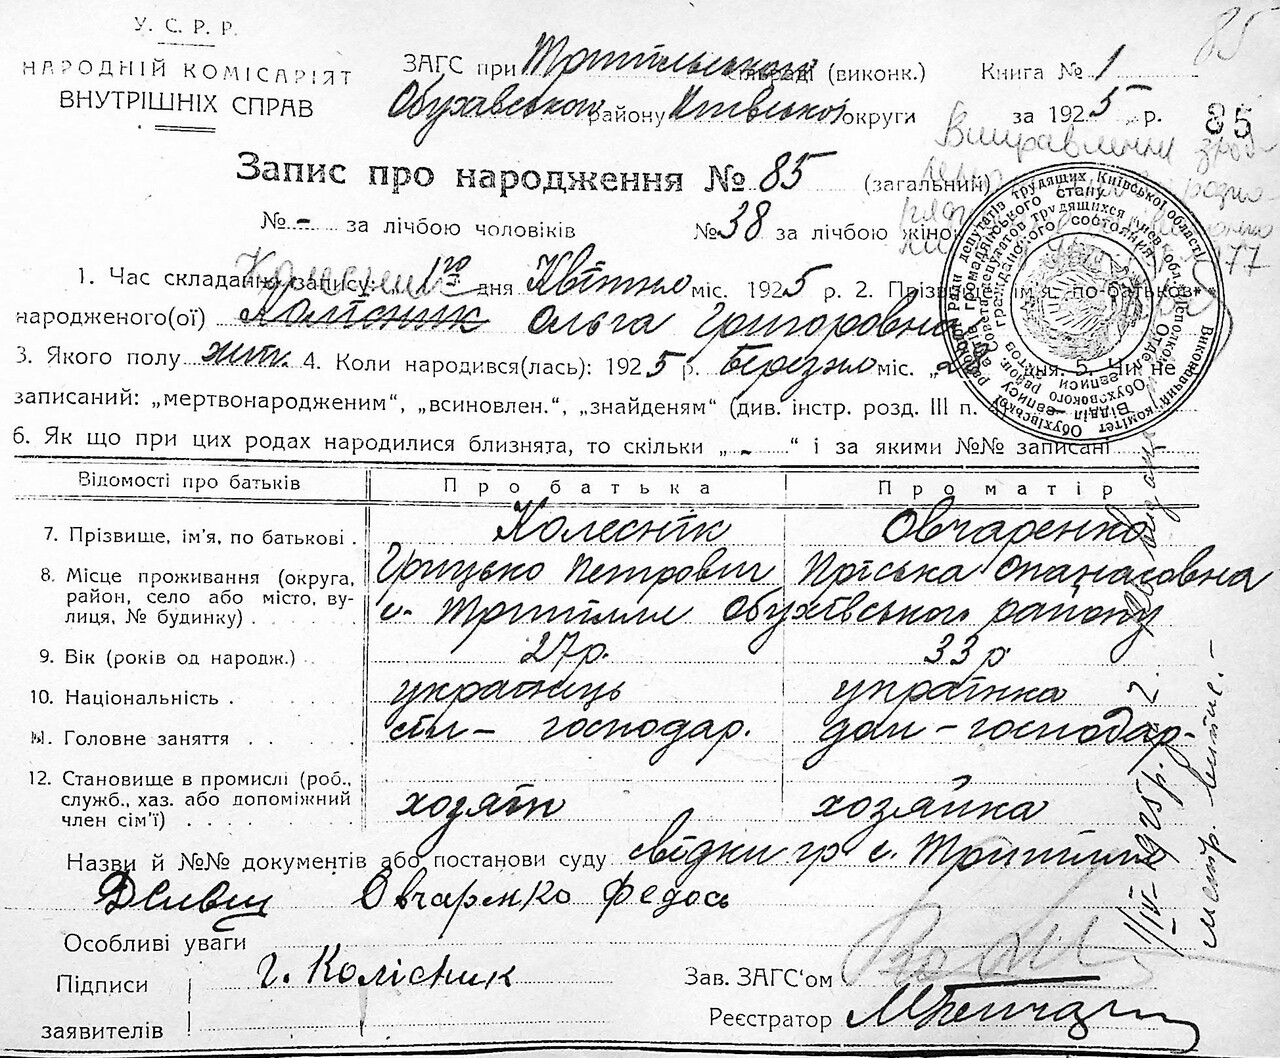 У. С. Р. Р.
НАРОДНІЙ КОМІСАРІЯТ
ВНУТРІШНІХ СПРАВ
ЗАГС при Трипільського (виконк.) Книга № 1
Обухавського району Київської округи за 1925 р.
85
85
Виправлення
Запис про народження № 85 (загальним)
№ – за лічбою чоловіків № 38 за лічбою жінок
77
1. Час складання запису: 1го дня Квітню міс. 1925 р. 2. Прізвище, ім'я, по-батькові
народженого(ої) Колісник Ольга Григоровна
3. Якого полу жін. 4. Коли народився(лась): 1925 р. Березню міс. „2 дня. 5. Чи не
записаний: „мертвонародженим“, „всиновлен.“, „знайденям“ (див. інстр. розд. III п.
6. Як що при цих родах народилися близнята, то скільки „ - “ і за якими №№ записані -
Відомості про батьків Про батька Про матір
7. Прізвище, ім'я, по батькові . Колеснік Овчаренко
Грицько Петрович Пріська Опанасовна
8. Місце проживання (округа, район, село або місто, вулиця, № будинку) с. Трипілля Обухівського району
9. Вік (років од народж.) 27р. 33 р
10. Національність . українець українка
11. Головне заняття . . . сіл – господар. дом – господар-
12. Становище в промислі (роб., служб., хаз. або допоміжний член сім'ї) хозяїн хозяйка
Назви й №№ документів або постанови суду свідки гр с. Трипілля
Овчаренко Федось
Особливі уваги
Підписи г. Колісник Зав. ЗАГС'ом
заявителів Реєстратор
1/IV–1925 р. № 2.